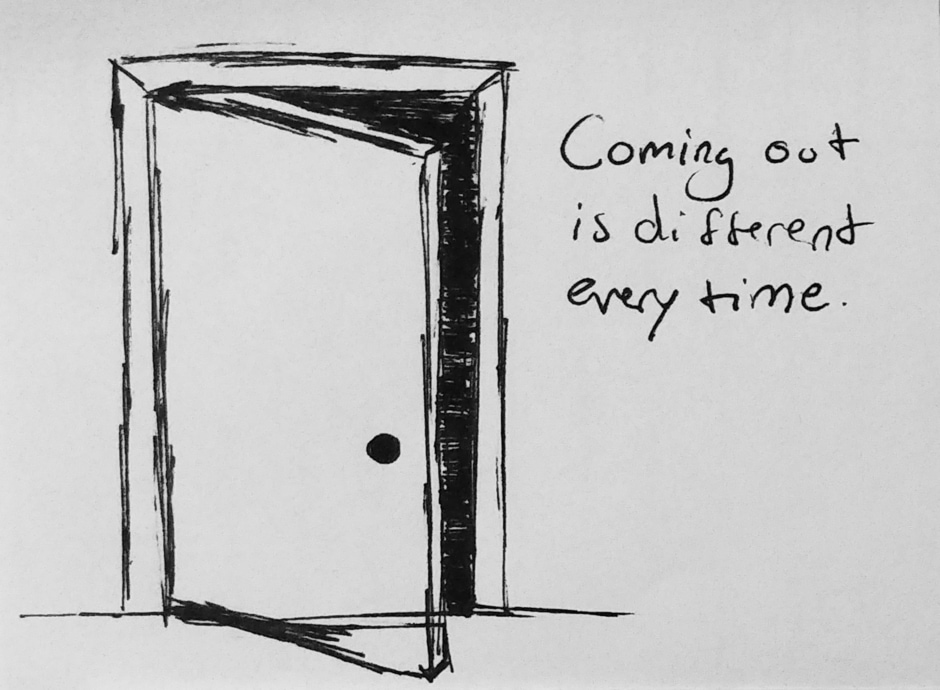 Coming out
is different
every time.